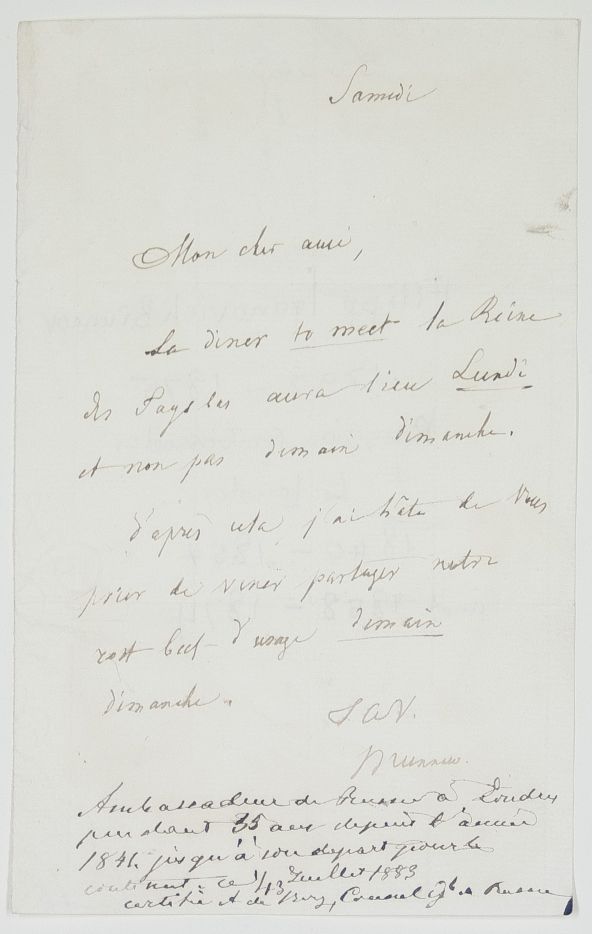 Samedi
Mon cher ami,
Le diner to meet la Reine
des Pays bas aura lieu Lundi
et non pas demain dimanche.
D'après cela j'ai hâte de Vous
prier de venir partager notre
rost beef d'usage demain
dimanche.
T. A V.
Brunnow.
Ambassadeur de Russie à Londres
pendant 35 ans depuis l'année
1841 jusqu'à son depart pour le
continent. ce 1/13 Juillet 1883
certifié A de Berg, Consul Gl de Russie